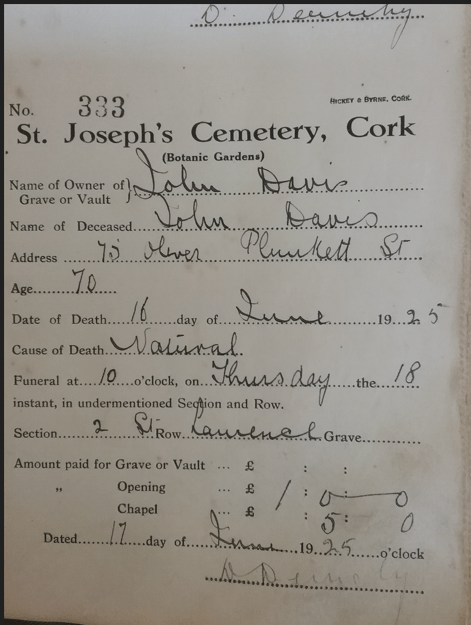 D. Dennehy
No. 333 HICKEY & BYRNE, CORK.
St. Joseph's Cemetery, Cork
(Botanic Gardens)
Name of Owner of } John Davis
Grave or Vault
Name of Deceased John Davis
Address 75 Oliver Plunkett St
Age 70
Date of Death 16 day of June 1925
Cause of Death Natural
Funeral at 10 o'clock, on Thursday the 18
instant, in undermentioned Section and Row.
Section 2 St Row Laurence Grave
Amount paid for Grave or Vault ... £ : :
„ Opening ... £ 1 : 0 : 0
Chapel ... £ : 5 : 0
Dated 17 day of June 1925 o'clock
D. Dennehy